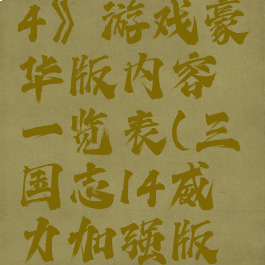 4》游戏豪
华版内容
一览表(三
国志14威
力加强版